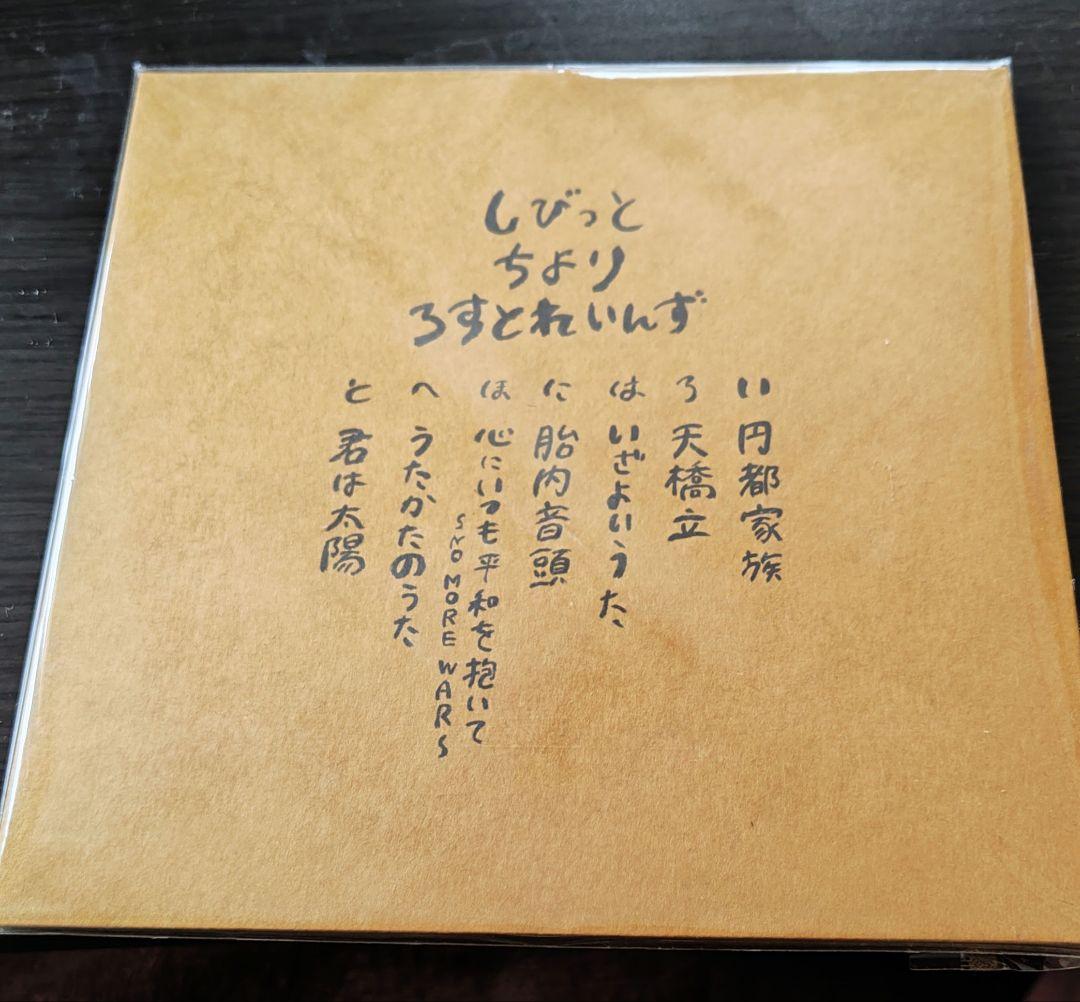 しびっと
ちより
ろすとれいんず
い 円都家族
ろ 天橋立
は いざよいうた
に 胎内音頭
ほ 心にいつも平和を抱いて
〜NO MORE WARS
へ うたかたのうた
と 君は太陽